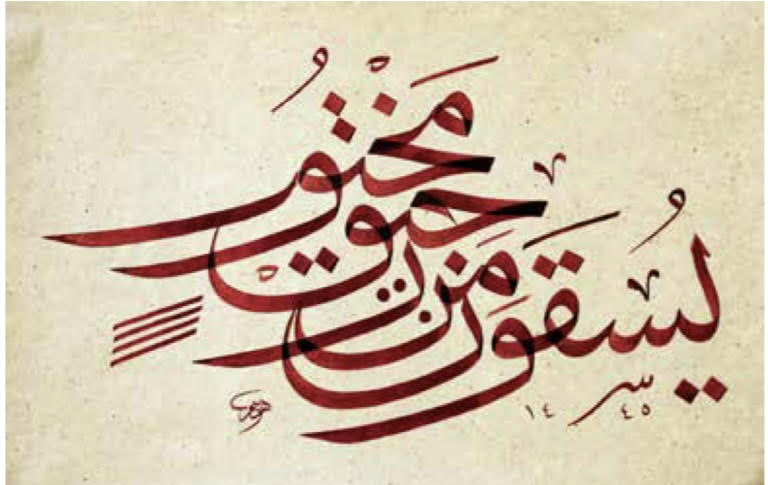 يسقون من رحيق مختوم
١٤٤٥